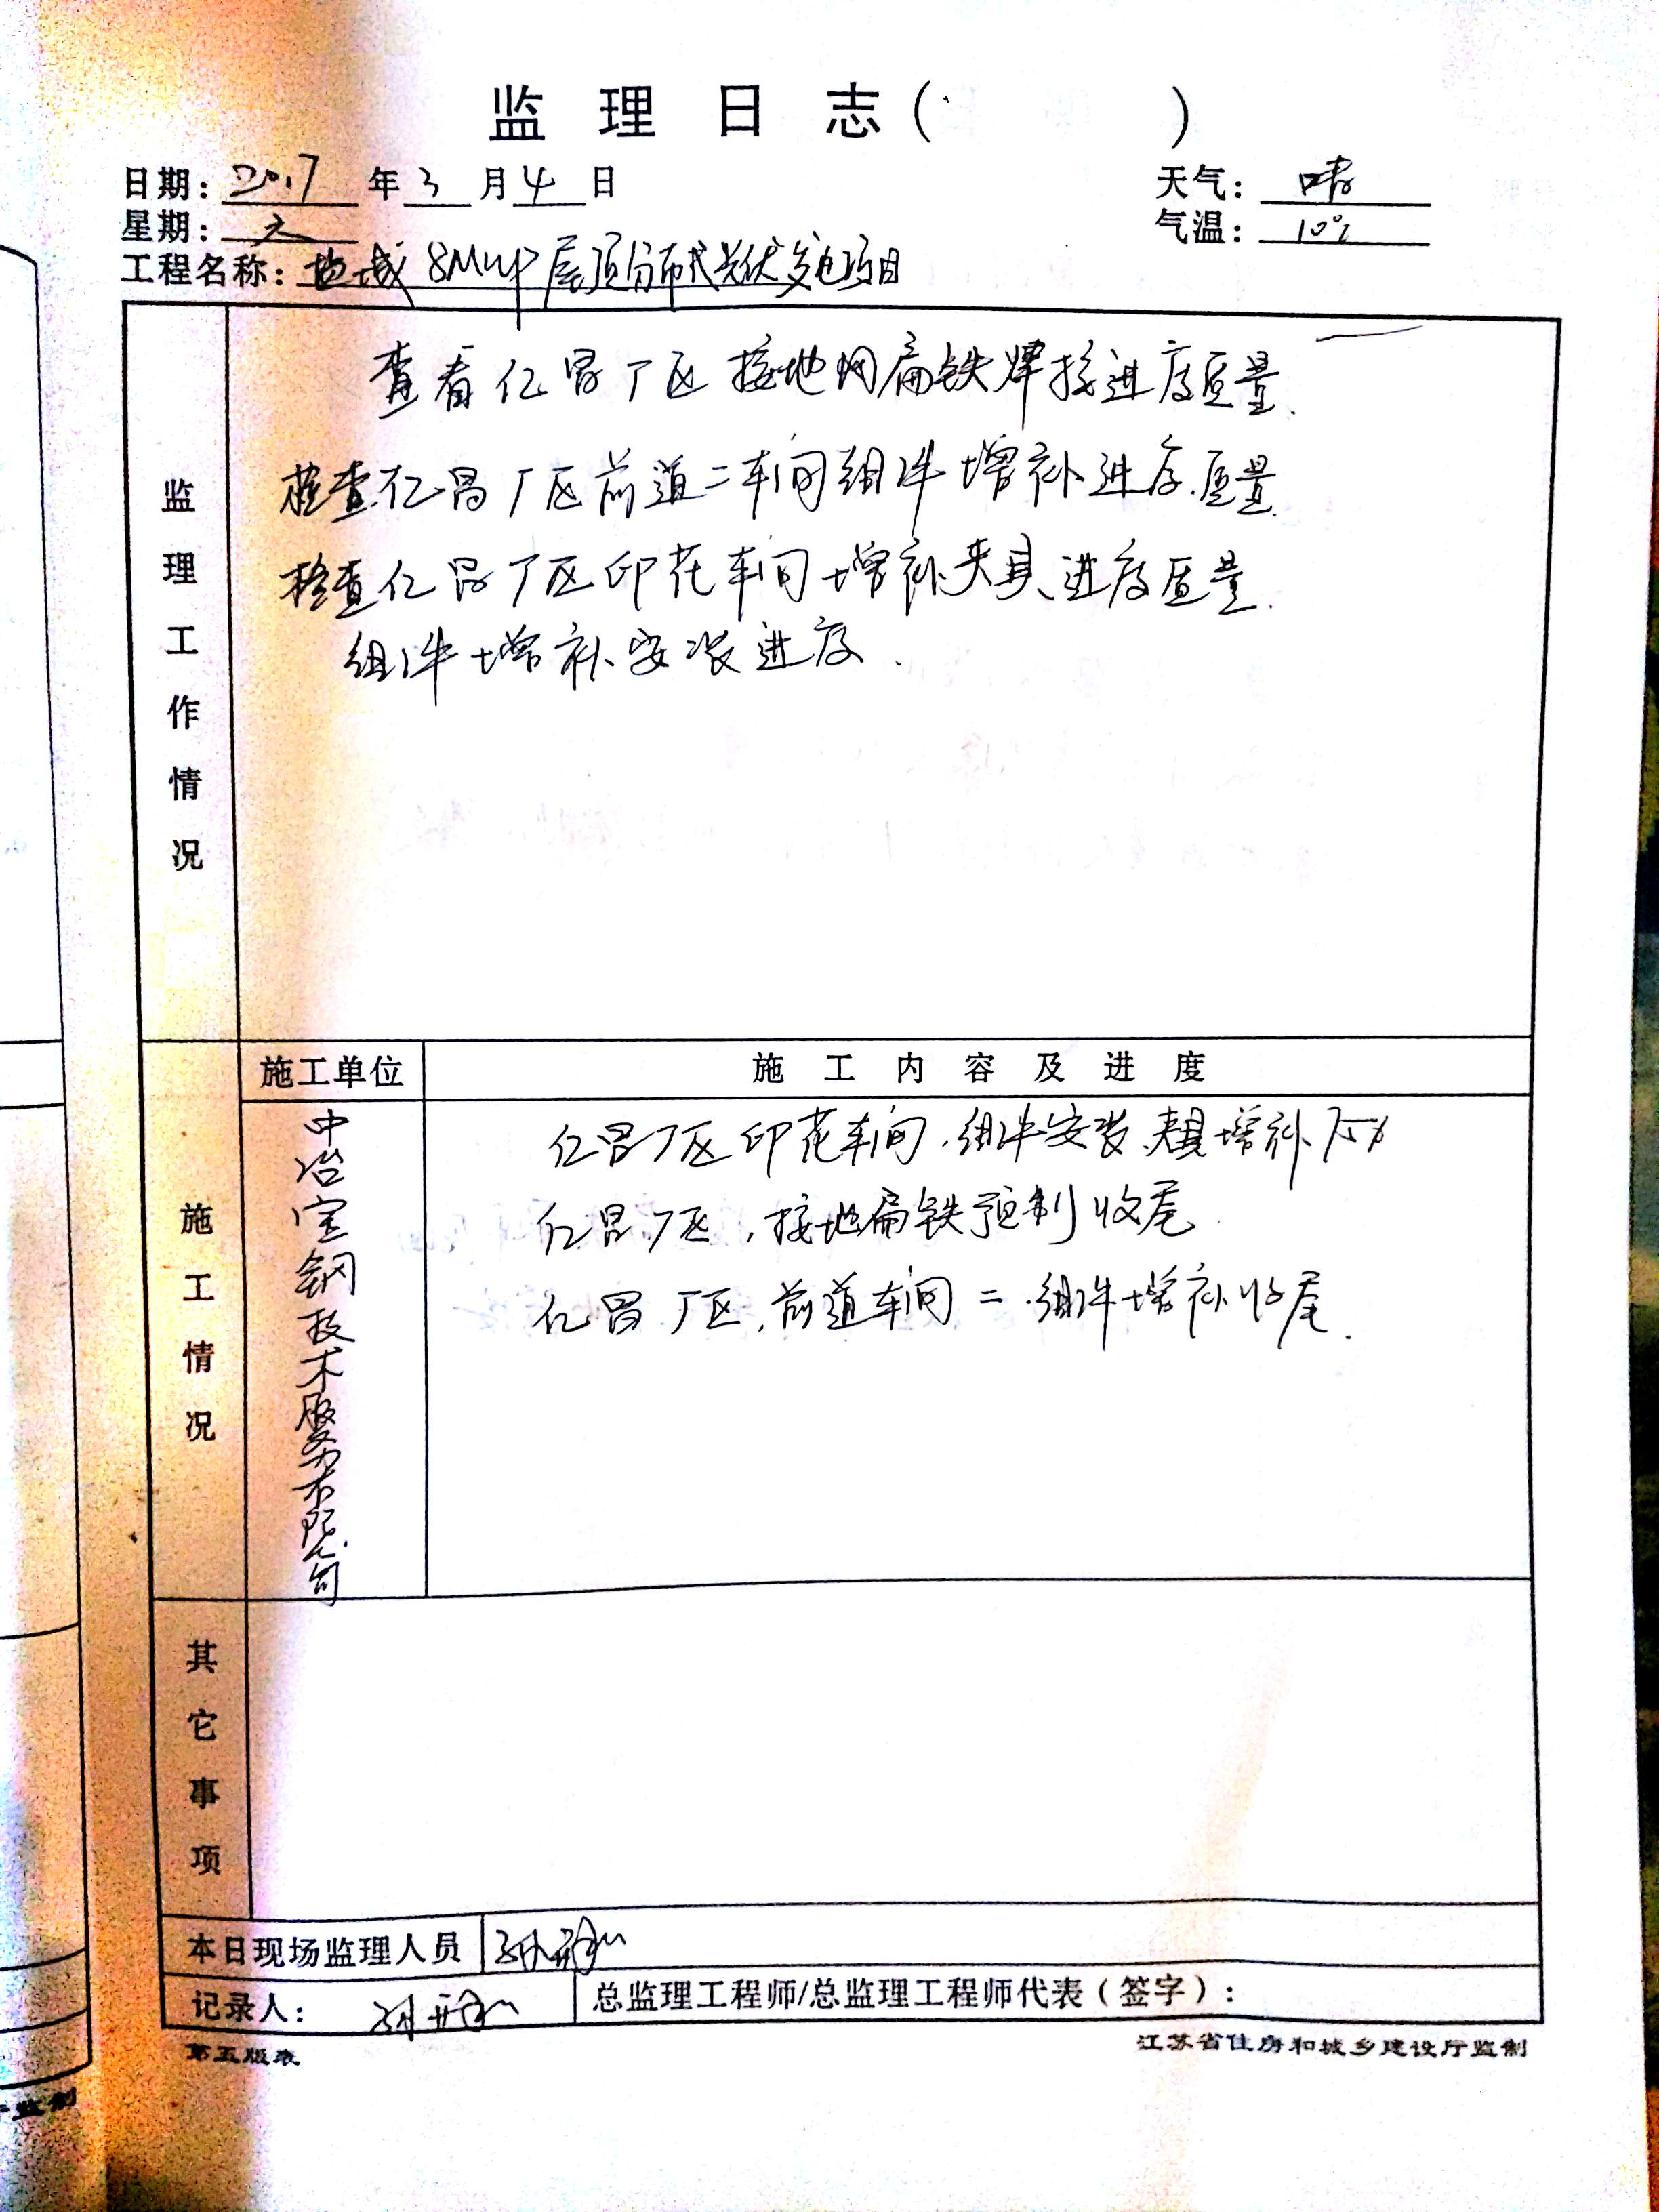 监理日志( )
日期: 2017 年 3 月 4 日
天气: 晴
星期: 六
气温: 10℃
工程名称: 盐城 8MWP 屋顶分布式光伏发电项目
监理工作情况
查看亿昌厂区接地网扁铁焊接进度质量.
检查亿昌厂区前道二车间组件增补进度.质量.
检查亿昌厂区印花车间增补夹具、进度质量.
组件增补安装进度.
施工单位
施工内容及进度
施工情况
中冶宝钢技术服务有限公司
亿昌厂区印花车间,组件安装、夹具增补75%
亿昌厂区,接地扁铁预制收尾
亿昌厂区,前道车间二.组件增补收尾.
其它事项
本日现场监理人员
记录人:
总监理工程师/总监理工程师代表(签字):
第五版表
江苏省住房和城乡建设厅监制
监制